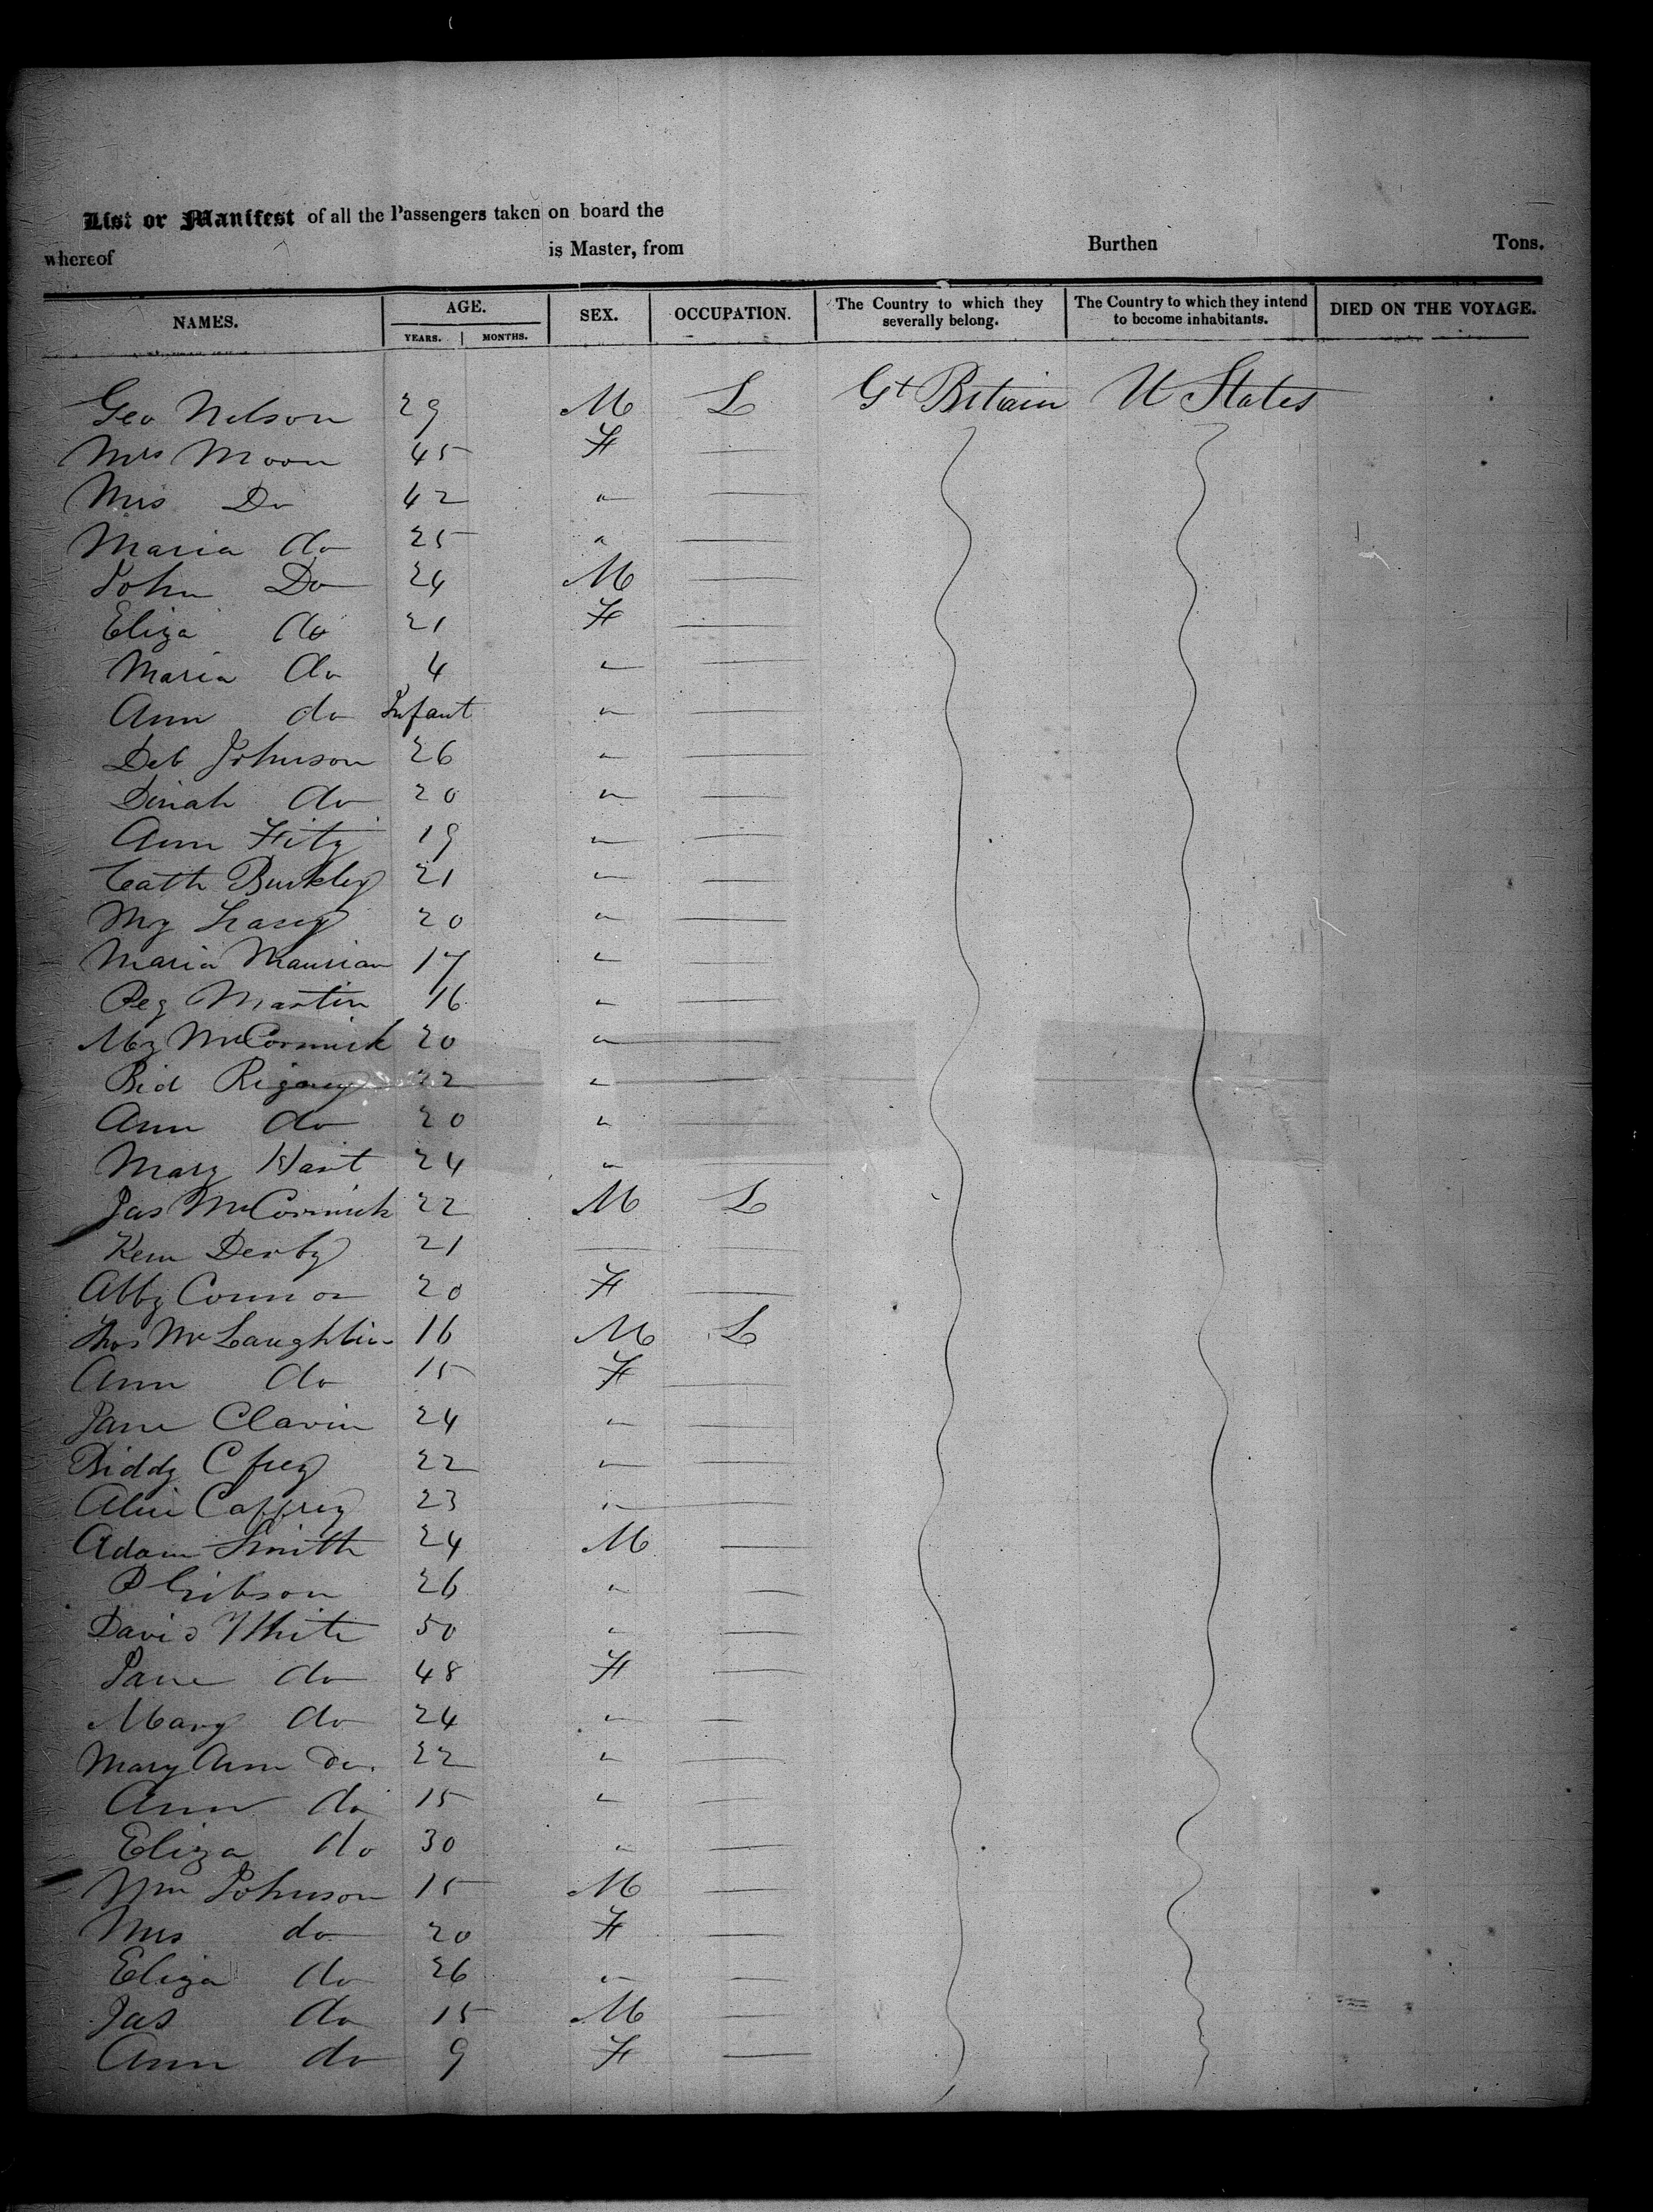 List or Manifest of all the Passengers taken on board the
whereof is Master, from Burthen Tons.
NAMES. AGE. YEARS. MONTHS. SEX. OCCUPATION. The Country to which they severally belong. The Country to which they intend to become inhabitants. DIED ON THE VOYAGE.
Geo Nelson 29 M L Gt Britain U States
Mrs Moon 45 F
Mrs Do 42 "
Maria do 25 "
John Do 24 M
Eliza do 21 F
Maria do 4 "
Ann do Infant "
Deb Johnson 26 "
Dinah do 20 "
Ann Fitz 19 "
Cath Buckley 21 "
My 20 "
Maria 17 "
Peg Martin 16 "
My McCormick 20 "
Bid Rigney 22 "
Ann do 20 "
Mary Hart 24 "
Jas McCormick 22 M L
Derby 21
Abby Connor 20 F
Thos McLaughlin 16 M L
Ann do 15 F
Jane Clavin 24 "
Biddy 22 "
Alice Caffrey 23 "
Adam Smith 24 M
P Gibson 26 "
David White 50 "
Jane do 48 F
Mary do 24 "
Mary Ann Do. 22 "
Ann do 15 "
Eliza do 30 "
Wm Johnson 15 M
Mrs do 20 F
Eliza do 26 "
Jas do 15 M
Ann do 9 F